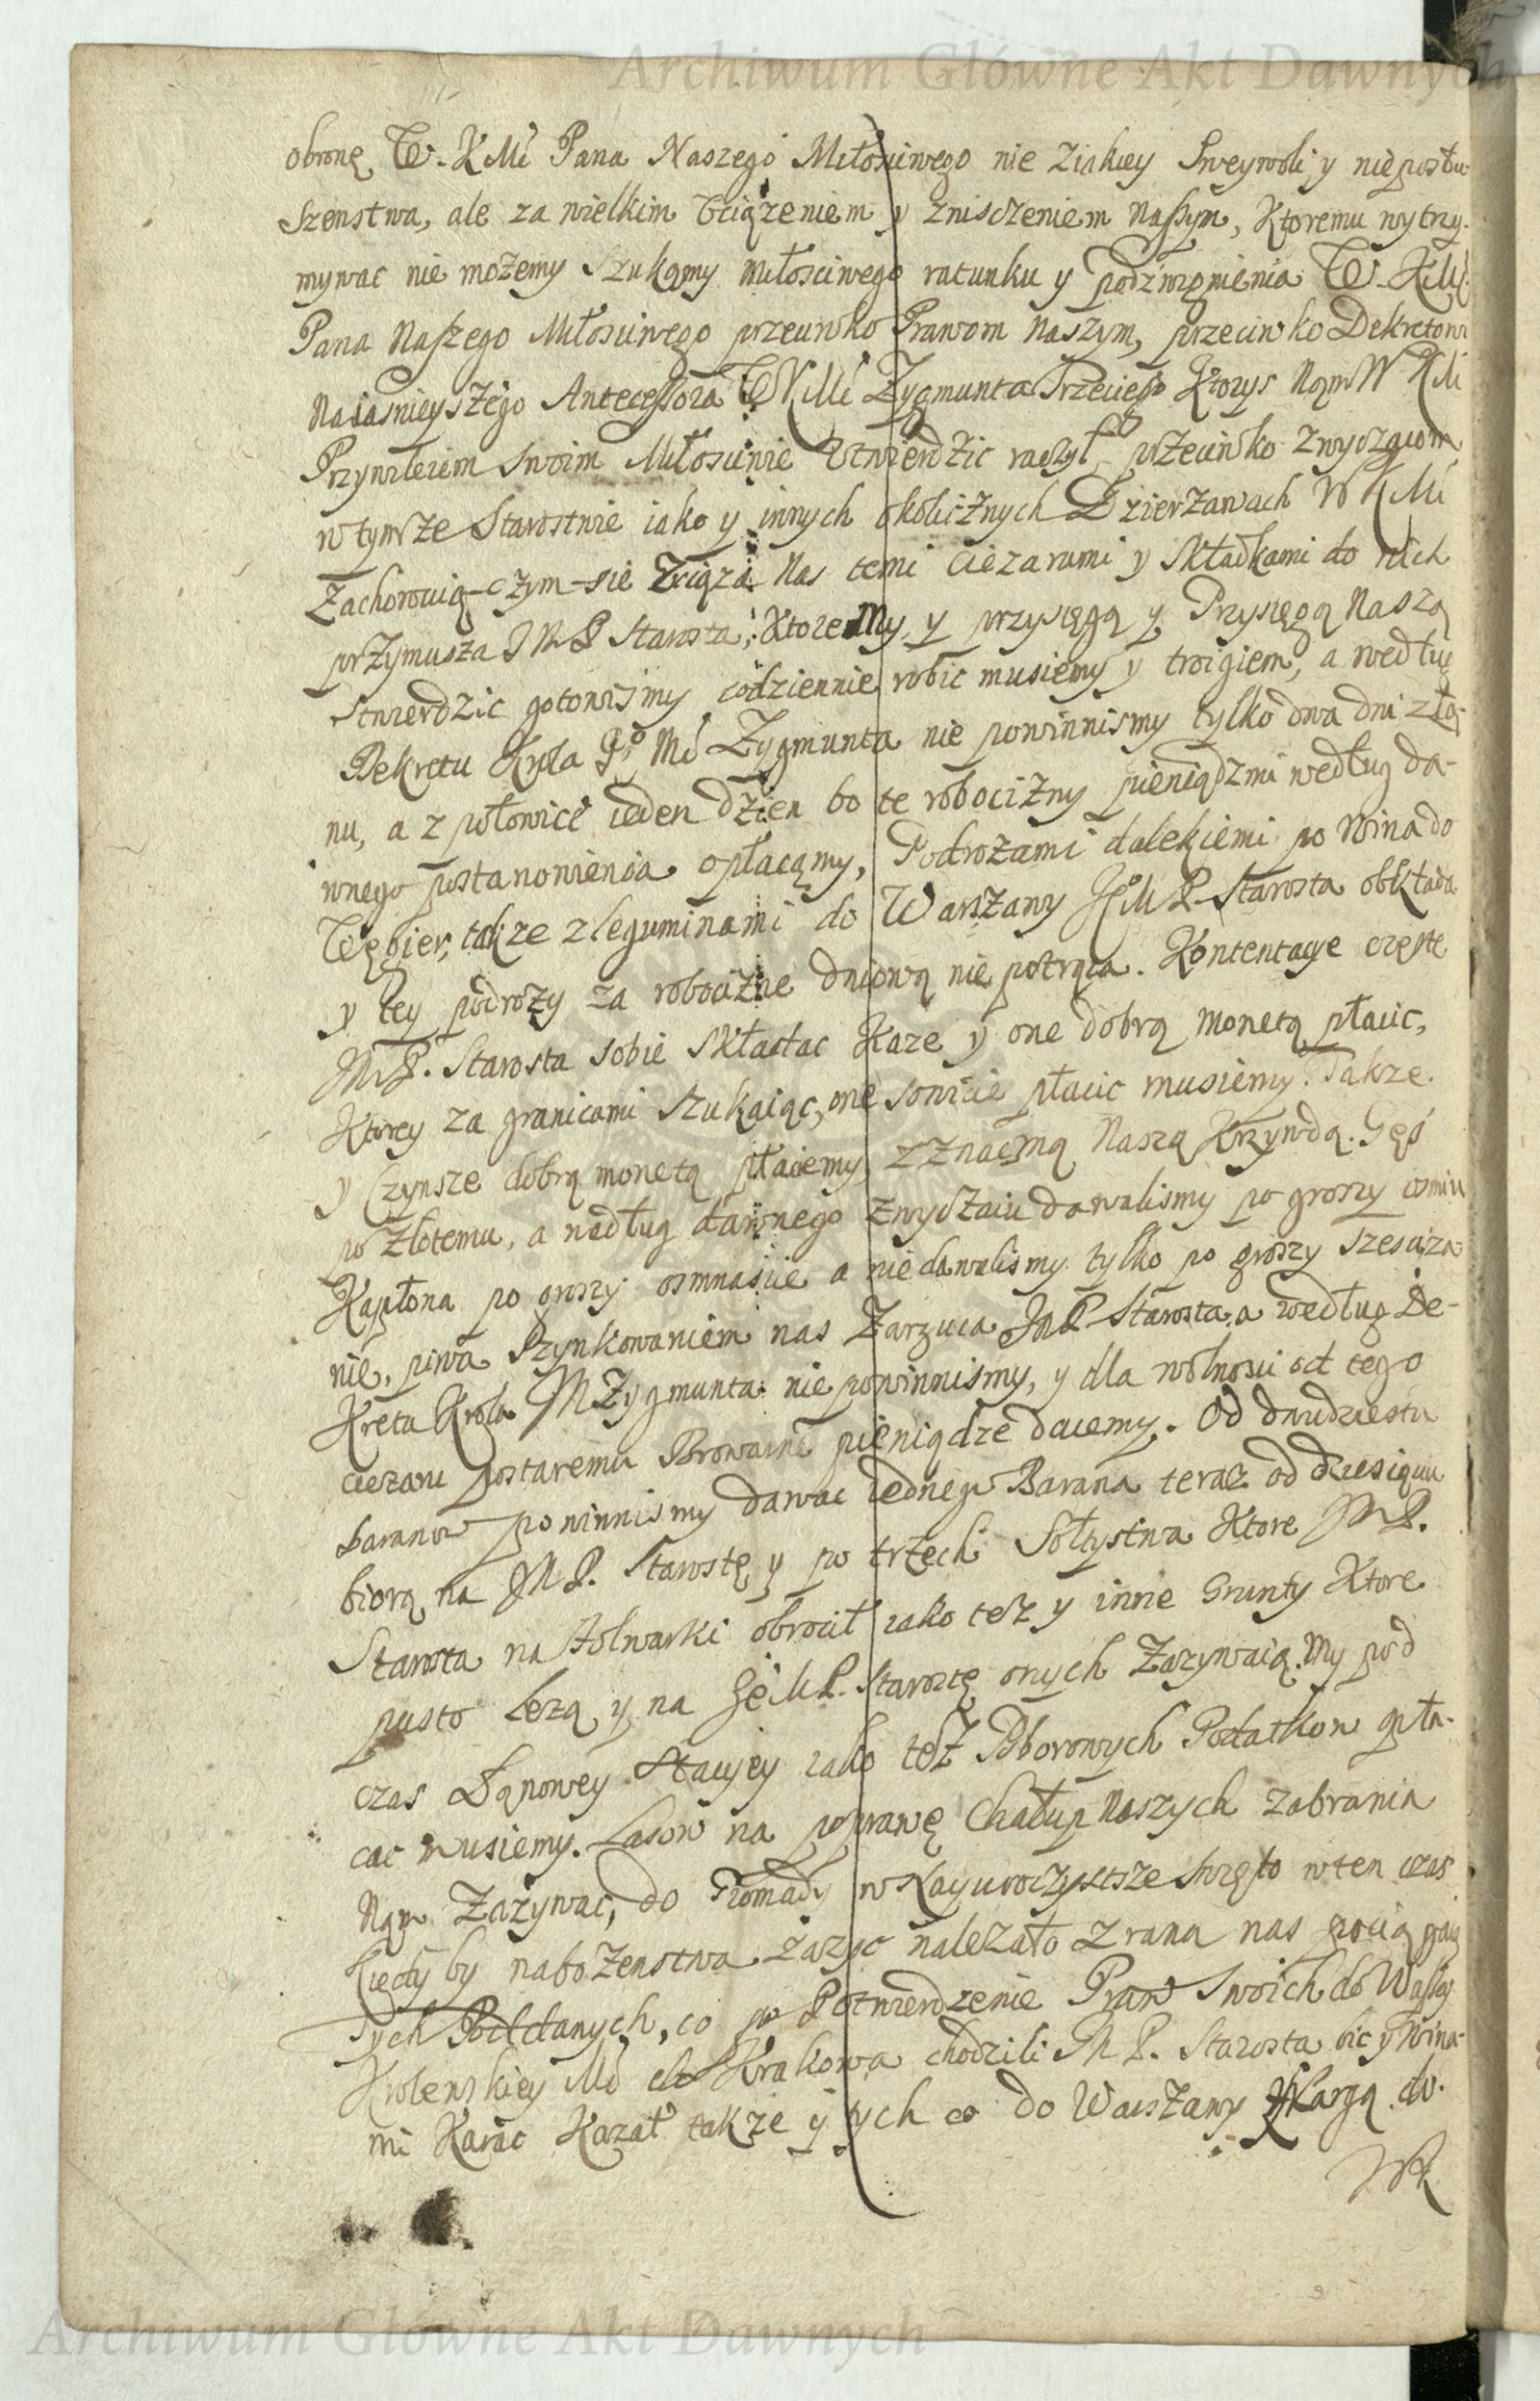 Archiwum Główne Akt Dawnych
obronę W. K Mci Pana Naszego Miłosciwego nie ziakiey Sweywoli y nieposłu-
szenstwa, ale za wielkim Uciążeniem y znisczeniem Naszym, Ktoremu wytrzy-
mywac nie możemy szukamy miłosciwego ratunku y podzwignienia W. K Mci.
Pana Naszego Miłosciwego przeciwko Prawom Naszym, przeciwko Dekretowi
Naiasnieyszego Antecessora W K Mci Zygmunta Trzeciego Ktorys Nam W K Mci
Przywileiem swoim Miłosciwie Utwierdzic raczył, przeciwko zwyczaiom
w tymze Starostwie iako y innych okolicznych Dzierzawach W K Mci
Zachowuią czym sie Uciąza Nas temi ciezarami y składkami do nich
przymusza J M P Starosta; Ktore My y przysięgą y Przysięgą Naszą
stwierdzic gotowismy codziennie robic musiemy y troigiem, a według
Dekretu Krola Jo Mci Zygmunta nie powinnismy tylko dwa dni z ła-
nu, a z połowice ieden dzien bo te robocizny pieniądzmi według da-
wnego postanowienia opłacamy, Podrozami dalekiemi po Wina do
Węgier, takze z leguminami do Warszawy Je M P Starosta obkłada
y tey podrozy za robocizne dniową nie potrąca. Kontentacye częste
J M P. Starosta sobie składac Kaze y one dobrą monetą płacic,
Ktorey za granicami szukaiąc, one sowicie płacic musiemy. Takze
y Czynsze dobrą monetą płaciemy z znaczną Naszą Krzywdą. Gęś
po złotemu, a według dawnego zwyczaiu dawalismy po groszy osmiu
Kapłona po groszy osmnascie a nie dawalismy tylko po groszy szesci za
nie, piwa szynkowaniem nas Zarzuca J M P Starosta, a według De-
Kreta Krola J M Zygmunta nie powinnismy, y dla wolnosci od tego
ciezaru postaremu Browarne pieniądze daiemy. Od dwudziestu
baranow powinnismy dawac iednego Barana teraz od dziesiąciu
biorą na J M P. Starostę y po trzech Sołtystwa Ktore J M P.
Starosta na Folwarki obrocił iako tesz y inne Grunty Ktore
pusto lezą y na Je M P. Starostę onych Zazywaią. My pod
czas Łanowey Stacyey iako tesz Poborowych Podatkow opła-
cac musiemy. Lasow na poprawę Chałup Naszych zabrania
Nam Zazywac, do Gromady w Nayuroczystsze swięto w ten czas
kiedy by nabozenstwa zazyc nalezało z rana nas pociągaią
Tych Poddanych, co po Potwierdzenie Praw Swoich do Waszey
Krolewskiey Mci do Krakowa chodzili J M P. Starosta bic y Wina-
mi Karac Kazał takze y tych co do Warszawy z skargą do
WK
Archiwum Główne Akt Dawnych